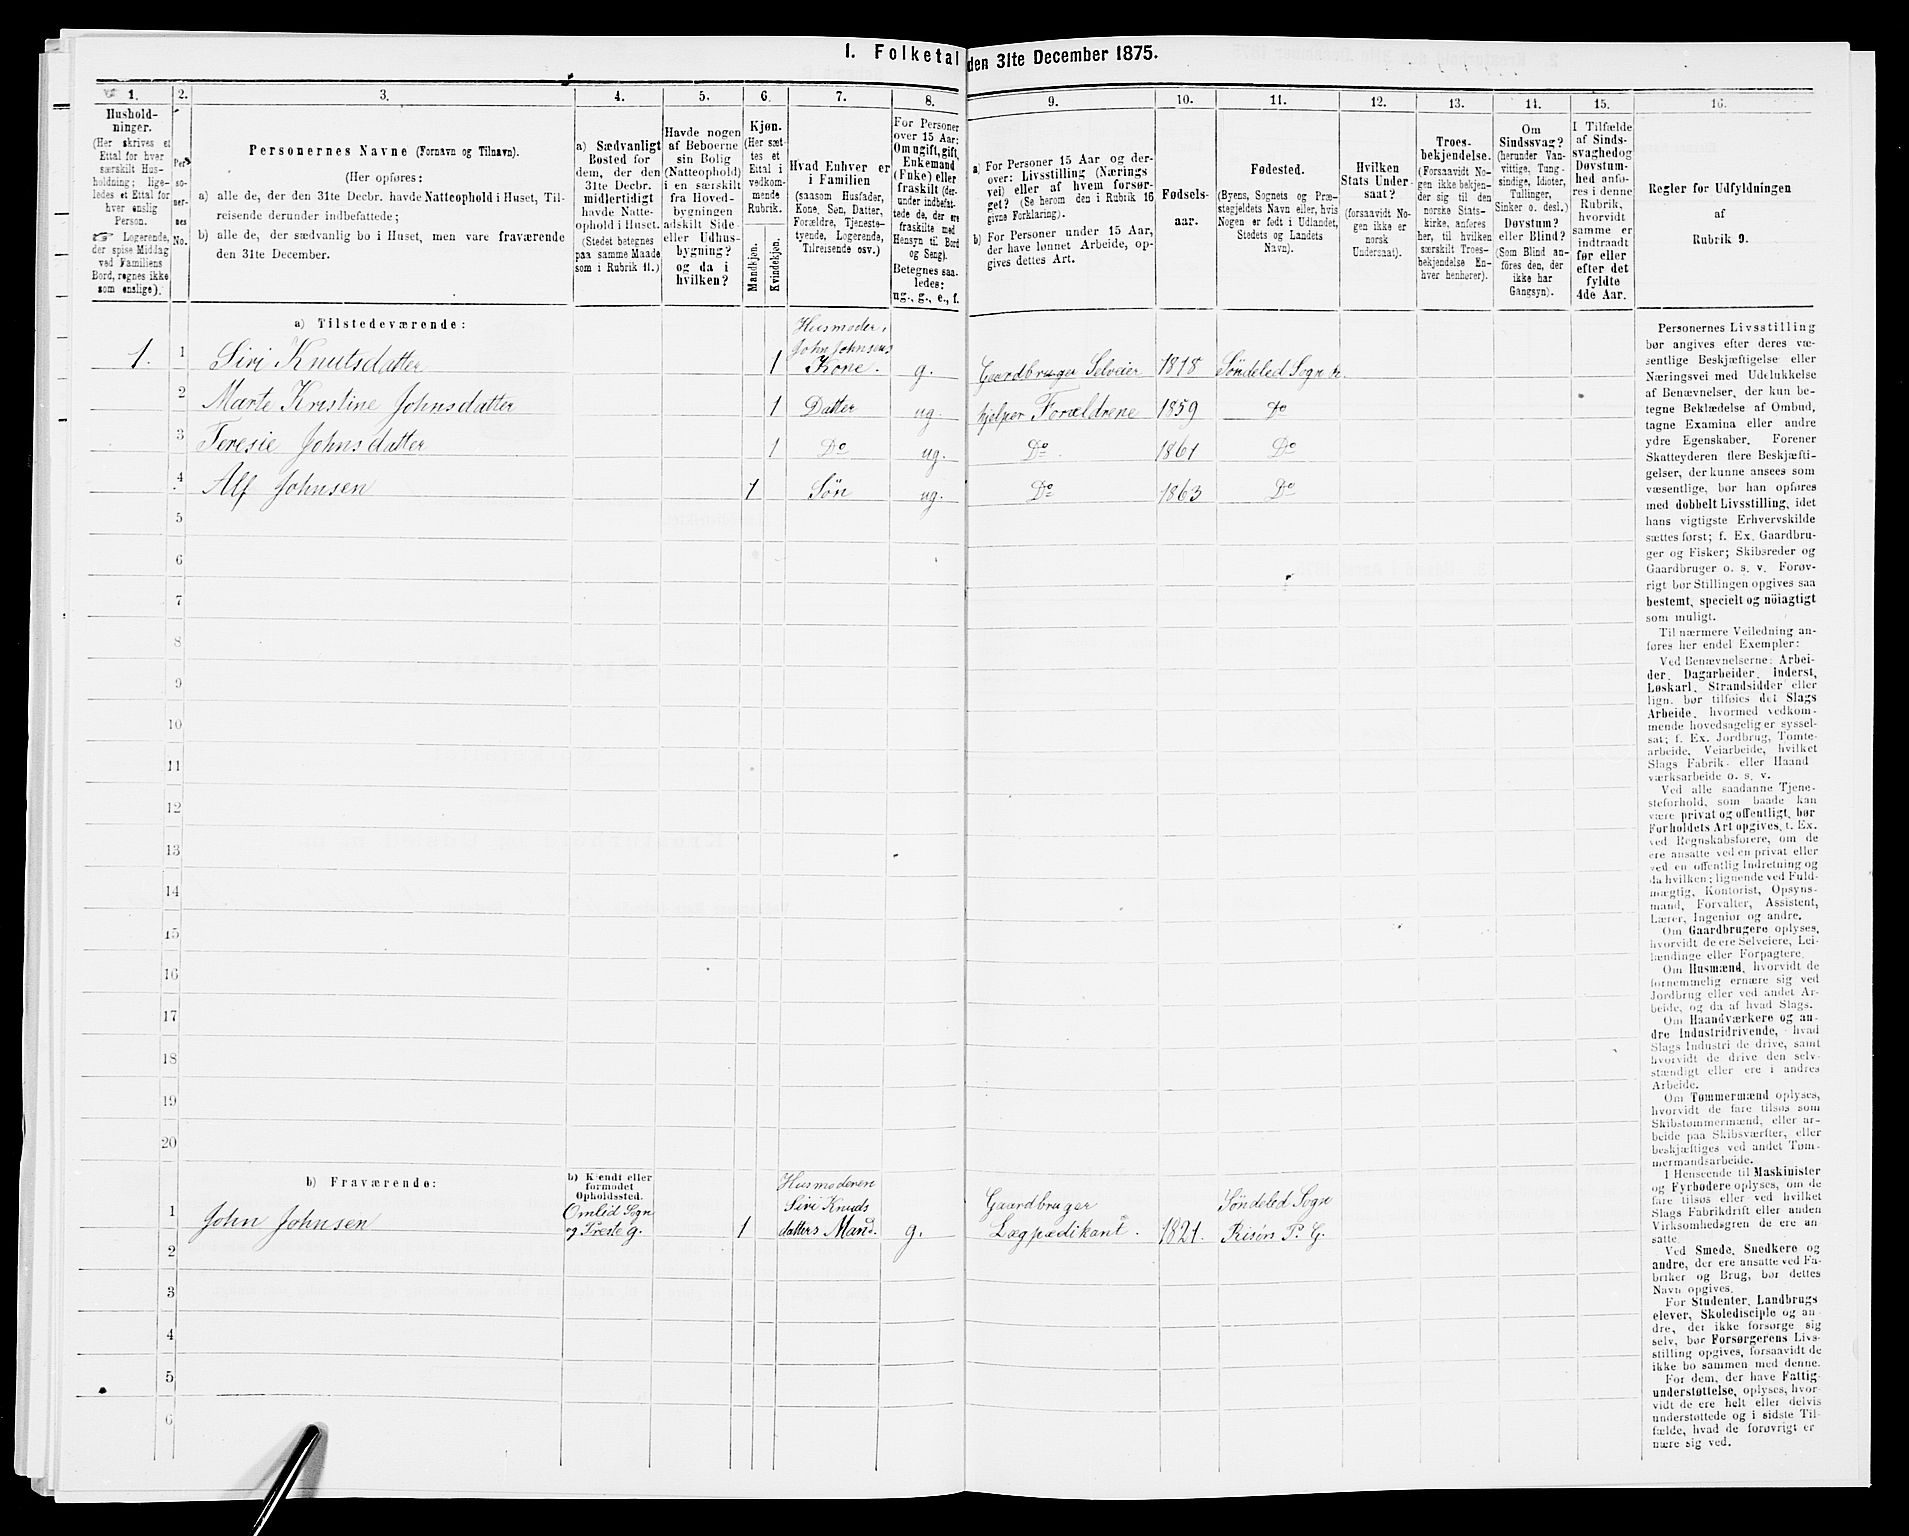 1. Folketal den 31te December 1875.
1. 2. 3. 4. 5. 6. 7. 8. 9. 10. 11. 12. 13. 14. 15. 16.
Hushold-
ninger.
(Her skrives et
Ettal for hver
særskilt Hus-
holdning; lige-
ledes et Ettal for
hver enslig
Person.
☞ Logerende,
der spise Middag
ved Familiens
Bord, regnes ikke
som enslige).
Per-
so-
ner-
nes
No.
Personernes Navne (Fornavn og Tilnavn).
(Her opføres:
a) alle de, der den 31te Decbr. havde Natteophold i Huset, Til-
reisende derunder indbefattede;
b) alle de, der sædvanlig bo i Huset, men vare fraværende
den 31te December.
a) Sædvanligt
Bosted for
dem, der den
31te Decbr.
midlertidigt
havde Natte-
ophold i Huset.
(Stedet betegnes
paa samme Maade
som i Rubrik 11.)
Havde nogen
af Beboerne
sin Bolig
(Natteophold)
i en særskilt
fra Hoved-
bygningen
adskilt Side-
eller Udhus-
bygning?
og da i
hvilken?
Kjøn.
(Her sæt-
tes et
Ettal i
vedkom-
mende
Rubrik.
Mandkjøn.
Kvindekjøn.
Hvad Enhver er
i Familien
(saasom Husfader,
Kone, Søn, Datter,
Forældre, Tjeneste-
tyende, Logerende,
Tilreisende osv.)
For Personer
over 15 Aar:
Om ugift, gift,
Enkemand
(Enke) eller
fraskilt (der-
under indbefat-
tede de, der ere
fraskilte med
Hensyn til Bord
og Seng).
Betegnes saa-
ledes:
ug., g., e., f.
a) For Personer 15 Aar og der-
over: Livsstilling (Nærings
vei) eller af hvem forsør-
get? (Se herom den i Rubrik 16
givne Forklaring).
b) For Personer under 15 Aar,
der have lønnet Arbeide, op-
gives dettes Art.
Fødsels-
aar.
Fødested.
(Byens, Sognets og Præ-
stegjeldets Navn eller, hvis
Nogen er født i Udlandet,
Stedets og Landets
Navn).
Hvilken
Stats Under-
saat?
(forsaavidt No-
gen ikke er
norsk
Undersaat).
Troes-
bekjendelse.
(Forsaavidt No-
gen ikke bekjen-
der sig til den
norske Stats-
kirke, anføres
her, til hvilken
særskilt Troes-
bekjendelse En-
hver henhører).
Om
Sindssvag?
(herunder Van-
vittige, Tung-
sindige, Idioter,
Tullinger,
Sinker o. desl.)
Døvstum?
eller Blind?
(Som Blind an-
føres den, der
ikke har
Gangsyn).
I Tilfælde
af Sinds-
svaghed og
Døvstum-
hed anfø-
res i denne
Rubrik,
hvorvidt
samme er
indtraadt
før eller
efter det
fyldte
4de Aar.
Regler for Udfyldningen
af
Rubrik 9.
a) Tilstedeværende:
1. 1 Siri Knutsdatter 1 Husmoder, John Johnsens Kone. g. Gaardbruger Selveier 1818 Söndeled Sogn
2 Marte Kristine Johnsdatter 1 Datter ug. hjelper Forældrene 1859 Do
3 Teresie Johnsdatter 1 Do ug. Do. 1861 Do
4 Alf Johnsen 1 Søn ug. Do 1863 Do
5
6
7
8
9
10
11
12
13
14
15
16
17
18
19
20
b) Fraværende:
b) Kjendt eller
formodet
Opholdssted.
1 John Johnsen Omlid Sogn og Præsteg. 1 Husmoderen Siri Knuds datters Mand. g. Gaardbruger Lægpædikant. 1821. Söndeled Sogn Risørs P. G.
2
3
4
5
6
Personernes Livsstilling
bør angives efter deres væ-
sentlige Beskjæftigelse eller
Næringsvei med Udelukkelse
af Benævnelser, der kun be-
tegne Beklædelse af Ombud,
tagne Examina eller andre
ydre Egenskaber. Forener
Skatteyderen flere Beskjæfti-
gelser, der kunne ansees som
væsentlige, bør han opføres
med dobbelt Livsstilling, idet
hans vigtigste Erhvervskilde
sættes først; f. Ex. Gaardbru-
ger og Fisker; Skibsreder og
Gaardbruger o. s. v. Forøv-
rigt bør Stillingen opgives saa
bestemt, specielt og nöiagtigt
som muligt.
Til nærmere Veiledning an-
føres her endel Exempler:
Ved Benævnelserne: Arbei-
der, Dagarbeider, Inderst,
Løskarl, Strandsidder eller
lign. bør tilføies det Slags
Arbeide, hvormed vedkom-
mende hovedsagelig er syssel-
sat; f. Ex. Jordbrug, Tomte-
arbeide, Veiarbeide, hvilket
Slags Fabrik- eller Haand
værksarbeide o. s. v.
Ved alle saadanne Tjene-
steforhold, som baade kan
være privat og offentligt, bør
Forholdets Art opgives, f. Ex.
ved Regnskabsførere, om de
ere ansatte ved en privat eller
ved en offentlig Indretning og
da hvilken; lignende ved Fuld-
mægtig, Kontorist, Opsyns-
mand, Forvalter, Assistent,
Lærer, Ingeniør og andre.
Om Gaardbrugere oplyses,
hvorvidt de ere Selveiere, Lei-
lændinge eller Forpagtere.
Om Husmænd, hvorvidt de
fornemmelig ernære sig ved
Jordbrug eller ved andet Ar-
beide, og da af hvad Slags.
Om Haandværkere og an-
dre Industridrivende, hvad
Slags Industri de drive, samt
hvorvidt de drive den selv-
stændigt eller ere i andres
Arbeide.
Om Tømmermænd oplyses,
hvorvidt de fare tilsøs som
Skibstømmermænd, eller ar-
beide paa Skibsværfter, eller
beskjæftiges ved andet Tøm-
mermandsarbeide.
I Henseende til Maskinister
og Fyrbødere oplyses, om de
fare tilsøs eller ved hvilket
Slags Fabrikdrift eller anden
Virksomhedsgren de ere an-
satte.
Ved Smede, Snedkere og
andre, der ere ansatte ved Fa-
briker og Brug, bør dettes
Navn opgives.
For Studenter, Landbrugs
elever, Skoledisciple og an-
dre, der ikke forsørge sig
selv, bør Forsørgerens Livs-
stilling opgives, forsaavidt de
ikke bo sammen med denne.
For dem, der have Fattig-
understøttelse, oplyses, hvor-
vidt de ere helt eller delvis
understøttede og i sidste Til-
fælde, hvad de forøvrigt er
nære sig ved.